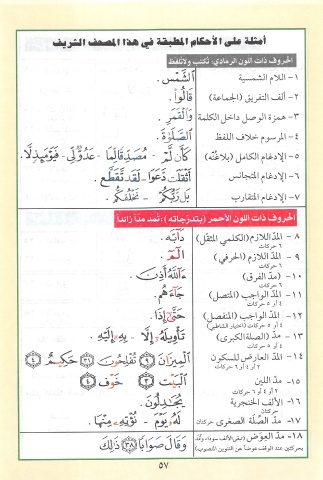 أمثلة على الأحكام المطبقة في هذا المصحف الشريف
الحروف ذات اللون الرمادي: تُكتب ولا تلفظ
١- اللام الشمسية الشَّمْسَ.
٢- ألف التفريق (الجماعة) قَالُوا.
٣- همزة الوصل داخل الكلمة وَالْقَمَرِ.
٤- المرسوم خلاف اللفظ الصَّلَوٰةَ.
٥- الإدغام الكامل (بلا غُنّة) كَأَن لَّمْ - مُصَدِّقًا لِّمَا - عَدُوٌّ لِّي - فَوَيْلٌ لِّلَّذِينَ.
٦- الإدغام المتجانس أَثْقَلَت دَّعَوَا - لَقَد تَّقَطَّعَ.
٧- الإدغام المتقارب بَل رَّبُّكُمْ - نَخْلُقكُّم.
الحروف ذات اللون الأحمر (بتدرّجاته): تُمد مداً زائداً
٨- المدّ اللازم (الكلمي المثقل) دَآبَّةٍ.
٦ حركات
٩- المدّ اللازم (الحرفي) الٓمٓ.
٦ حركات
١٠- (مدّ الفرق) ءَآللَّهُ أَذِنَ.
٦ حركات
١١- المدّ الواجب (المتصل) جَآءَهُم.
٤ أو ٥ حركات
١٢- المدّ الواجب (المنفصل) حَتَّىٰٓ إِذَا.
٤ أو ٥ حركات (اختيار الشاطبي)
١٣- مدّ (الصلة الكبرى) تَأْوِيلَهُۥٓ إِلَّا - بِهِۦٓ إِلَيْهِ.
٤ أو ٥ حركات
١٤- المدّ العارض للسكون الْمِيزَانَ ٩ تُفْلِحُونَ ٣١ حَكِيمٌ ٤
٢ أو ٤ أو ٦ حركات
١٥- مدّ اللين الْبَيْتِ ٣ خَوْفٍ ٤
٢ أو ٤ أو ٦ حركات
١٦- الألف الخنجرية يُجَٰدِلُونَ.
حركتان
١٧- مدّ الصِّلة الصغرى حركتان لَهُۥ يَوْمَ - نُؤْتِهِۦ مِنْهَا.
١٨- مدّ العِوَض
بحركتين عند الوقف عوضاً عن التنوين المنصوب) وَقَالَ صَوَابًا ٣٨ ذَٰلِكَ
٥٧